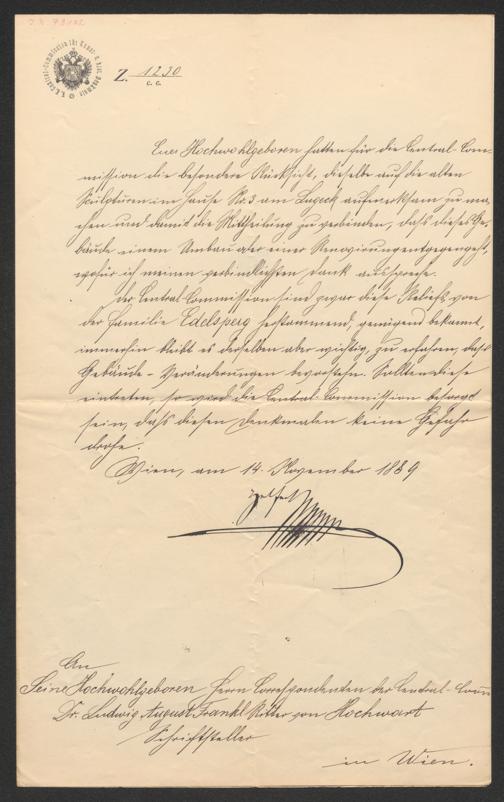 J. N. 79102
K. K. Central-Commission für Kunst- u. hist. Denkmale
Z. 1230
C. C.
Euer Hochwohlgeboren hatten für die Central-Com-
mission die besondere Rücksicht, dieselbe auf die alten
Sculpturen im Hause Nr. 3 am Lugeck aufmerksam zu ma-
chen und damit die Mittheilung zu verbinden, dass dieses Ge-
bäude einem Umbau oder einer Renovirung entgegengeht,
wofür ich meinen verbindlichsten Dank ausspreche.
Der Central-Commission sind zwar diese Reliefs von
der Familie Edelsperg herstammend, genügend bekannt,
immerhin bleibt es derselben aber wichtig, zu erfahren, dass
Gebäude-Veränderungen bevorstehen. Sollten diese
eintreten, so wird die Central-Commission besorgt
sein, dass diesen Denkmalen keine Gefahr
drohe.
Wien, am 14. November 1889
Helfert
An
Seine Hochwohlgeboren Herrn Correspondenten der Central-Comm
Dr. Ludwig August Frankl Ritter von Hochwart
Schriftsteller
in Wien.